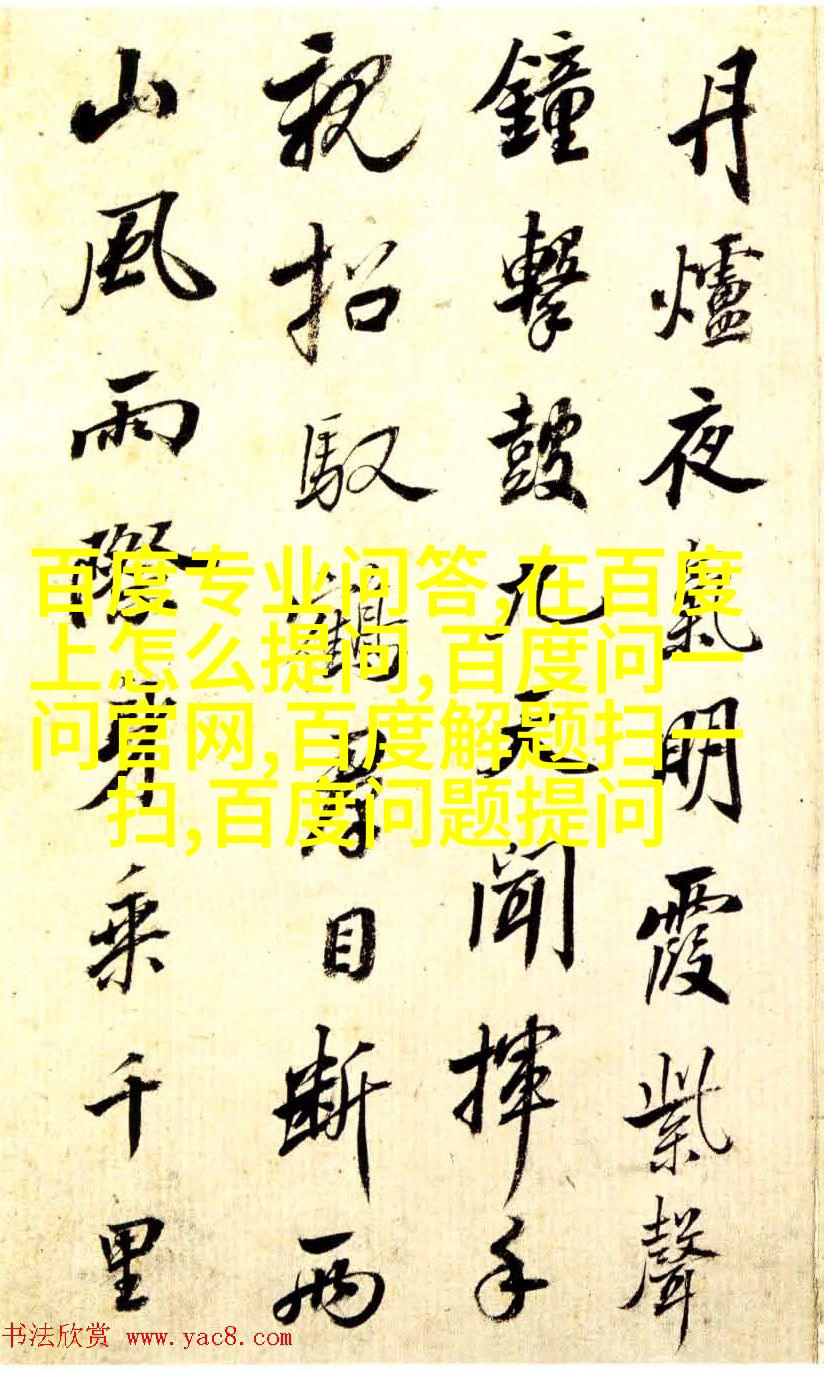 丹爐夜氣明霞紫聲
鐘擊鼓九天聞揮手
親招馭鶴目斷兩
山風雨際乘千里
百度专业问答,在百度
上怎么提问,百度问一
问官网,百度解题扫一
扫,百度问题提问
书法欣赏 www.yac8.com